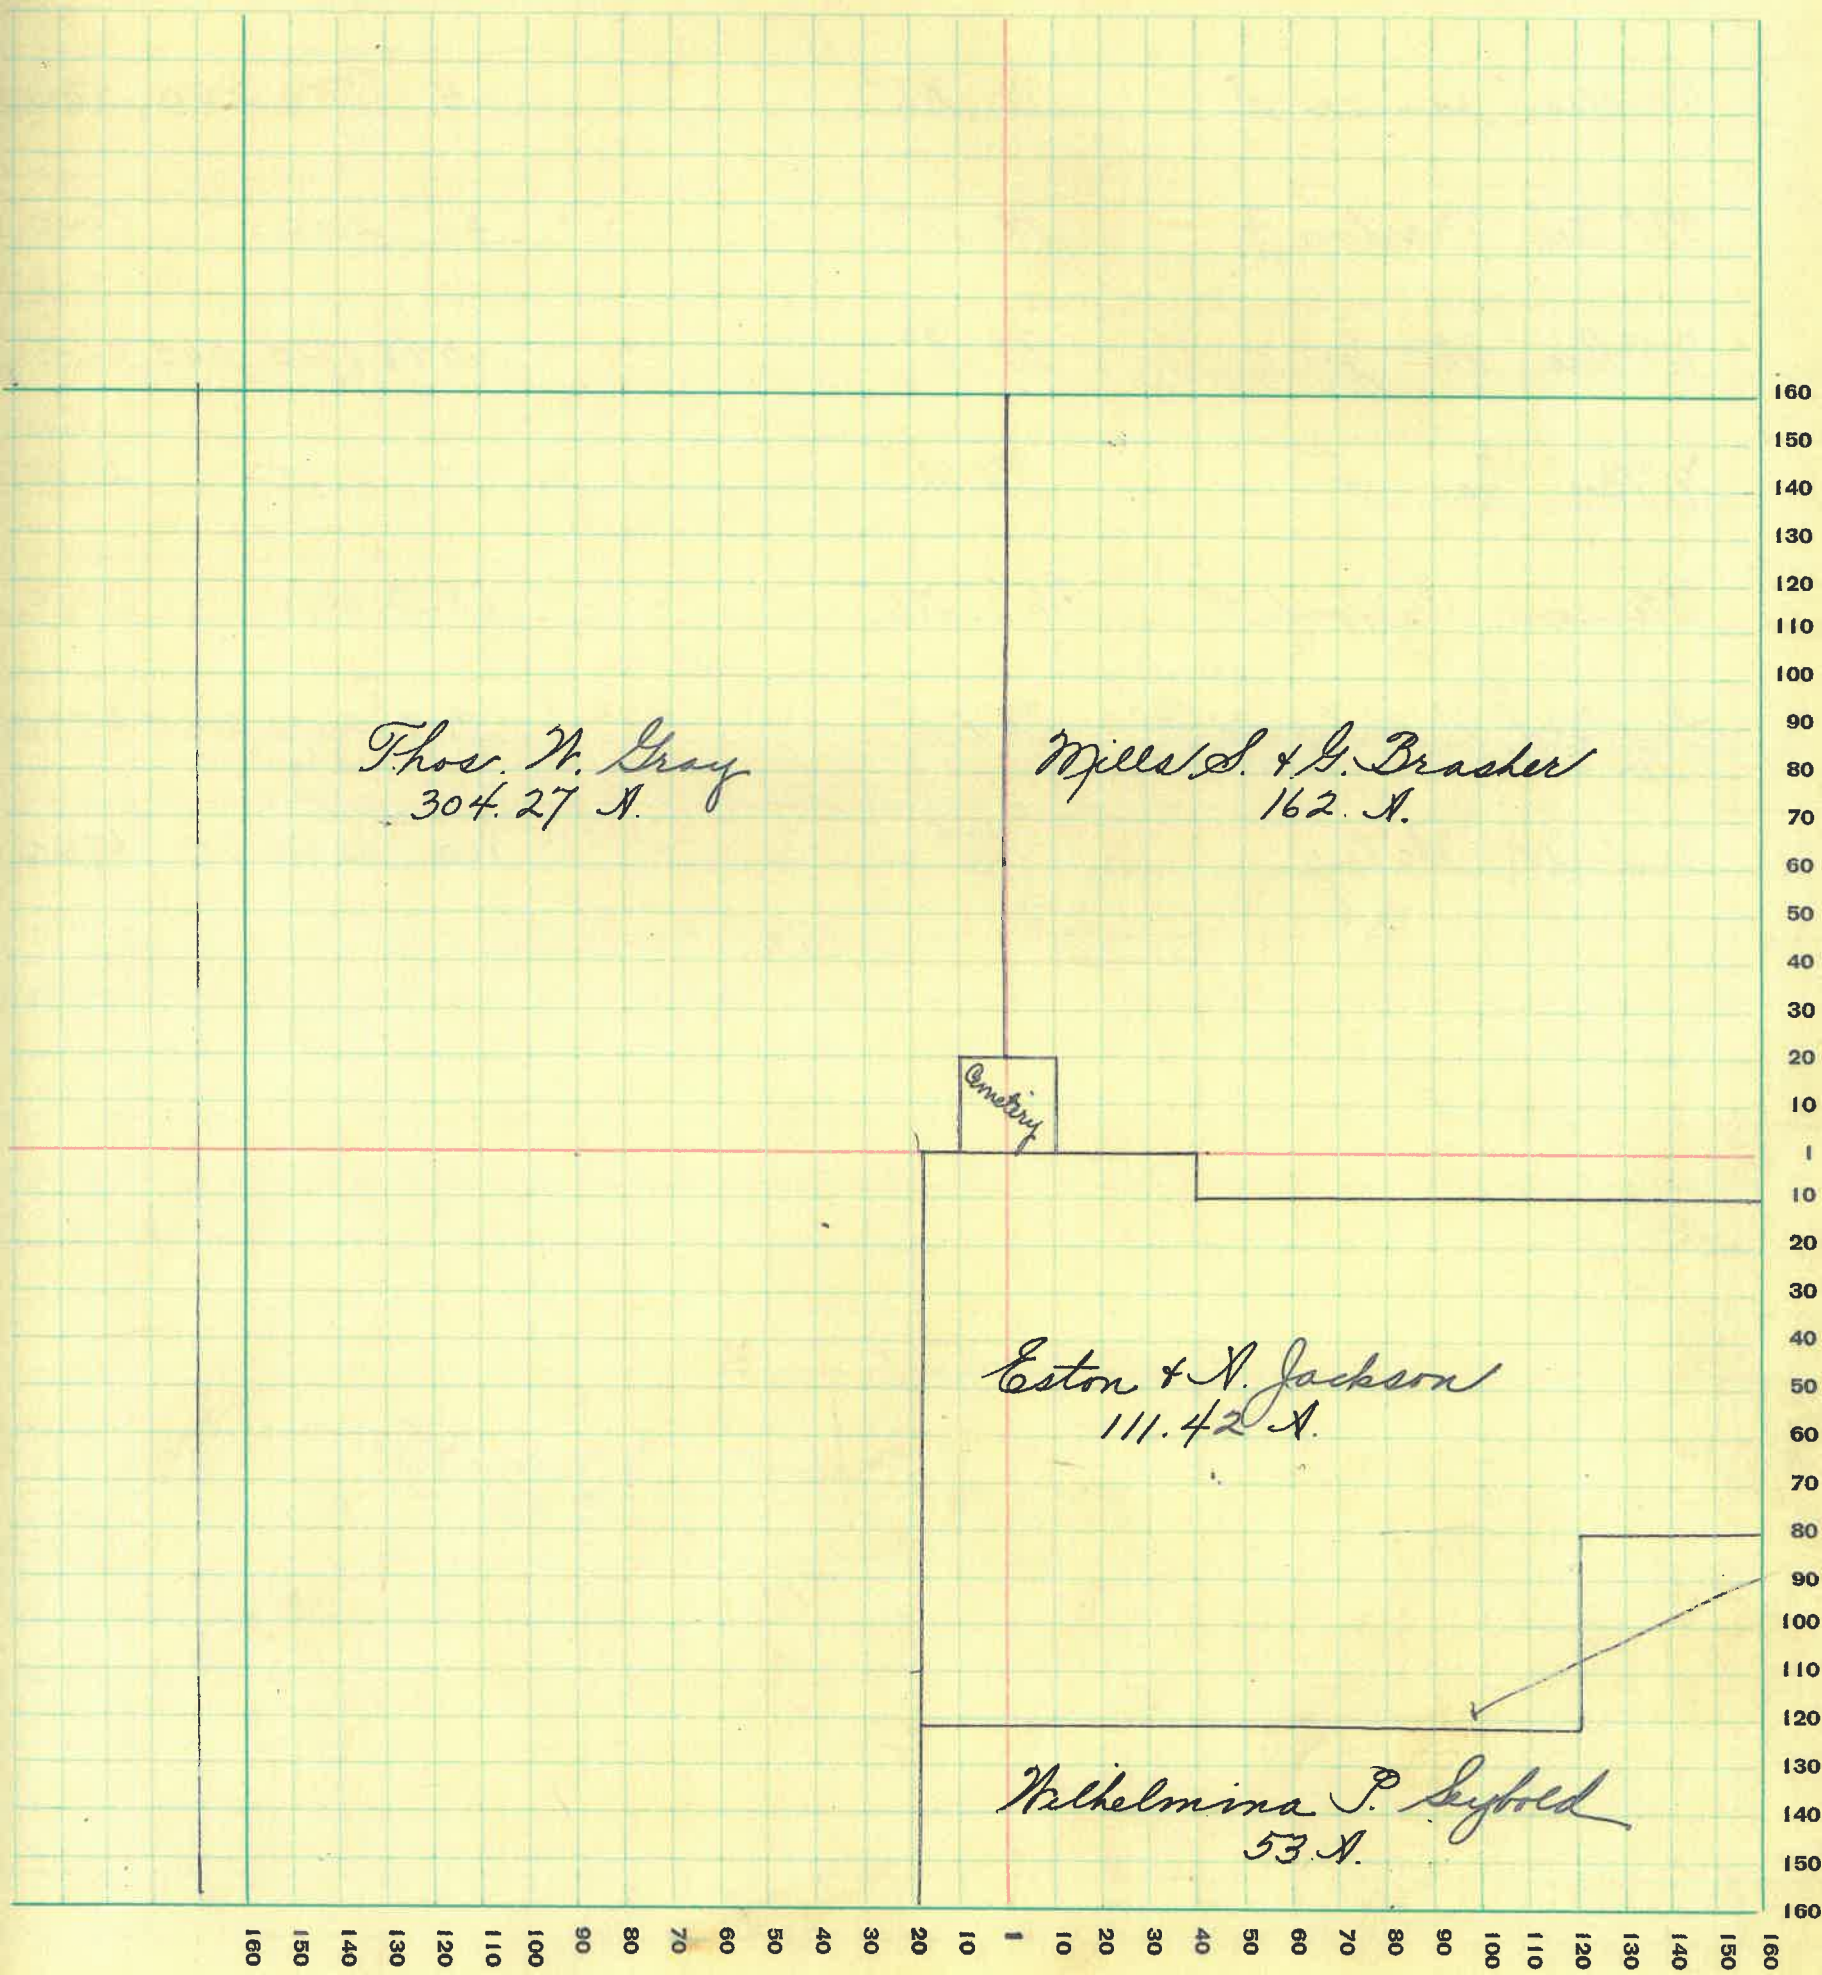 Thos. W. Gray
304.27 A.
Mills S. & G. Brasher
162. A.
Cemetery
Eston & A. Jackson
111.42 A.
Wilhelmina P. Seybold
53 A.
160
150
140
130
120
110
100
90
80
70
60
50
40
30
20
10
1
10
20
30
40
50
60
70
80
90
100
110
120
130
140
150
160
160 150 140 130 120 110 100 90 80 70 60 50 40 30 20 10 1 10 20 30 40 50 60 70 80 90 100 110 120 130 140 150 160